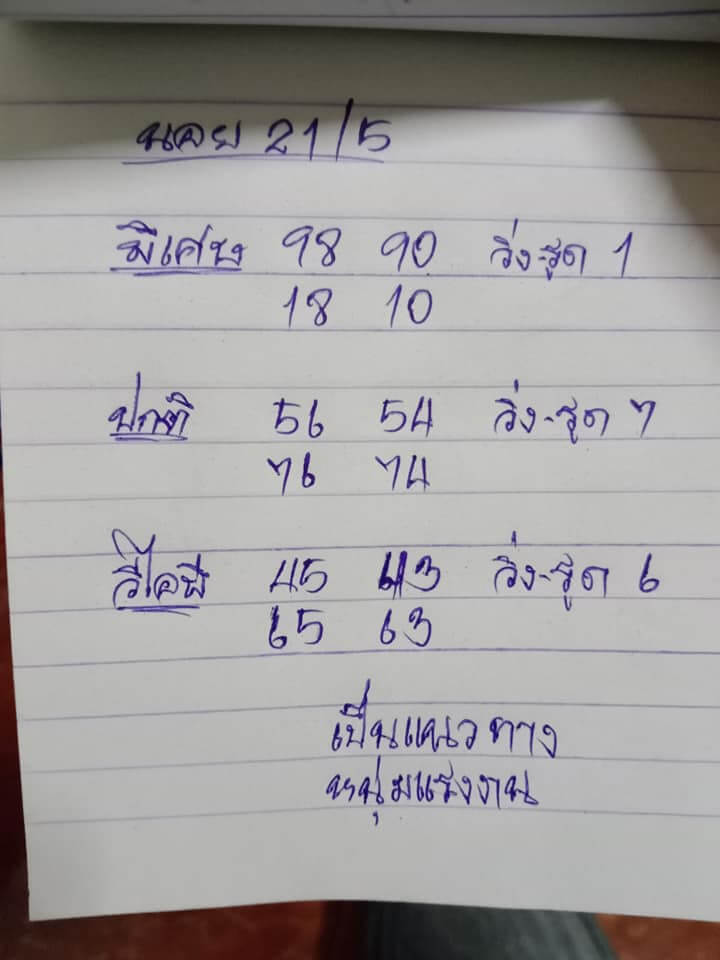 นอย 21/5
พิเศษ 98 90 วิ่ง-รูด 1
18 10
ปกติ 56 54 วิ่ง-รูด 7
76 74
วีไอพี 45 43 วิ่ง-รูด 6
65 63
เป็นแนวทาง
หนุ่มแรงงาน